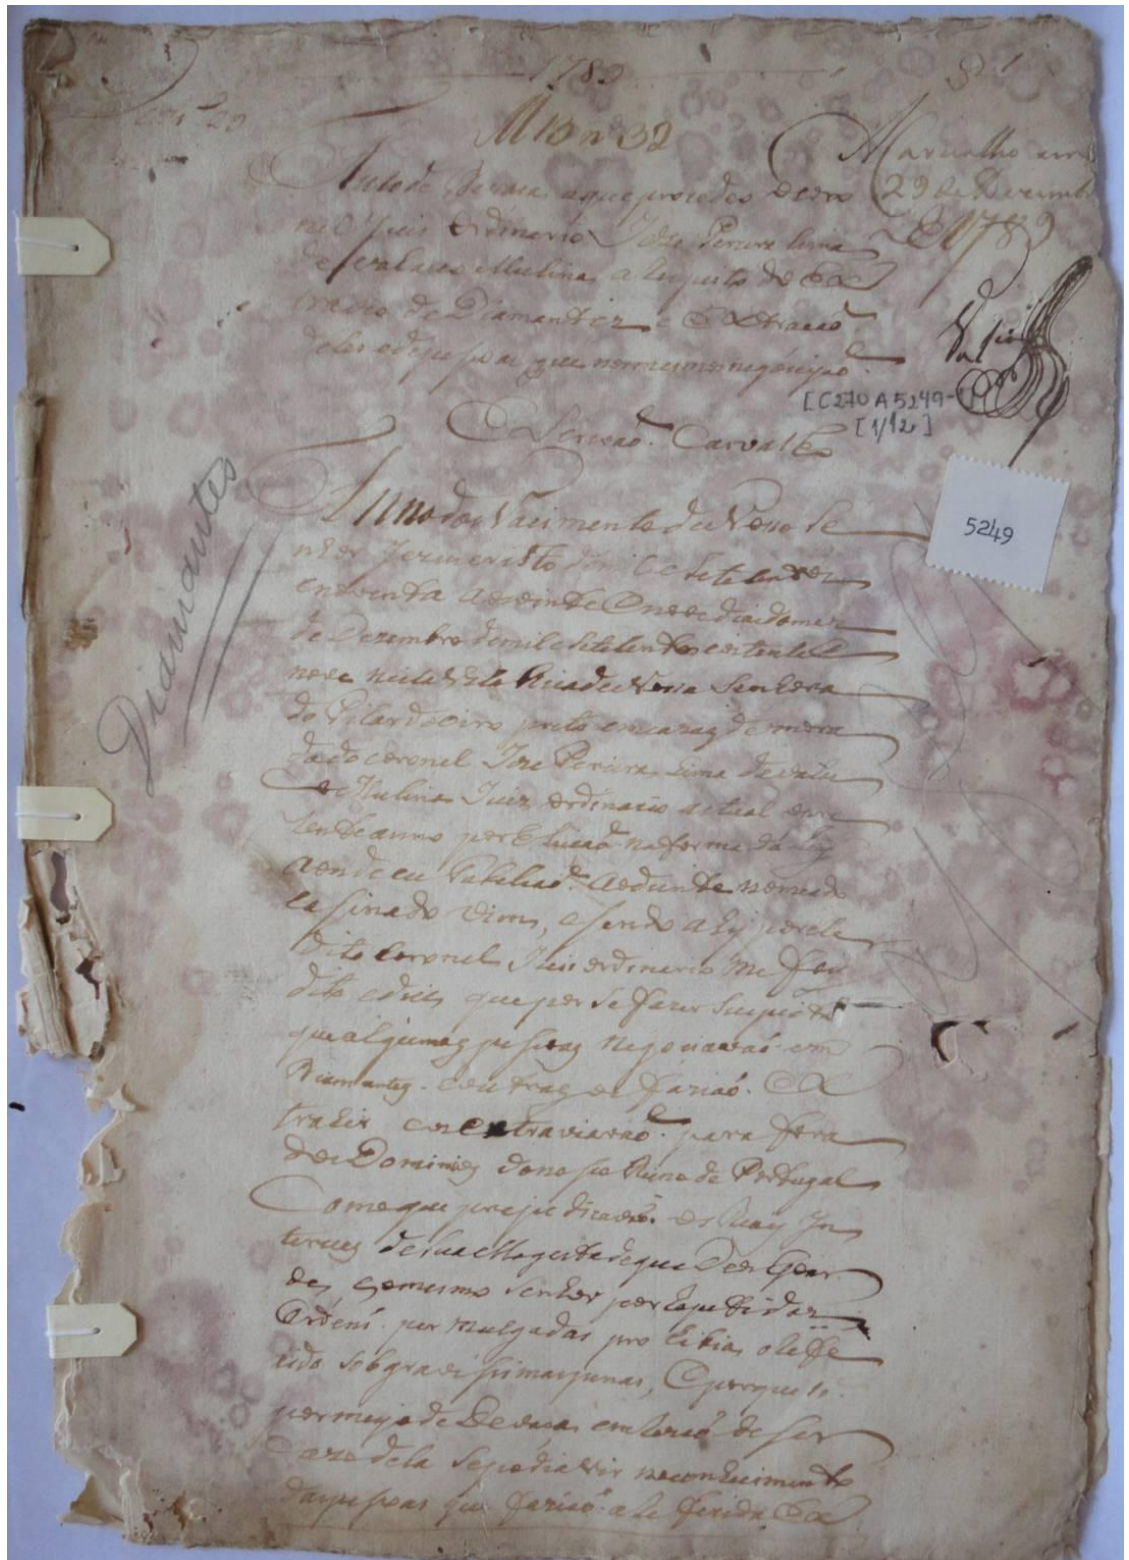 1789
M 13 n 32
Carvalho
29 de Dezembro
de 1789
Auto de Devaça a que procedeo o coro
nel Juis ordinario Joze Pereira Lima
de Vallasco Mulina a Respeito do Ex
travio de Diamantes e Extracaõ
deles
[C270 A5249-
[1/12]
Escrivaõ Carvalho
5249
Diamantes
Anno do Nacimento de Noso Se
nhor Jezus cristo de mil e Sete centos
e oitenta aos vinte e Nove dias do mes
de Dezembro de mil e Sete centos e oitenta e
nove nesta Vila Rica de Nossa Senhora
do Pilar do oiro preto em cazas de mora
da do coronel Joze Pereira Lima de Valas
co Mulina Juiz ordinario actual o pre
zente anno por Eleicaõ na forma da ley
aonde eu Tabeliaõ ao diante nomeado
e a Sinado vim, e sendo aly por ele
dito coronel Juis ordinario me foi
dito e dise que por Se fazer Suspeito
que algumas pesoas negociavaõ em
Diamantes e outras os faziaõ Ex
trahir e os extraviavaõ para fora
dos Dominios do noso Reino de Portugal
Com o que prejudicavaõ os Reais In
terices de Sua Magestade que Deos Goar
de, e o mesmo Senhor por Repetidas
Ordens promulgadas prohibia o Refe
rido sob gravisimas penas, E porque só
por meyo de Devaça em Rezaõ de Ser
cazo dela Se podia vir no conhecimento
das pesoas que faziaõ a Referida Ex